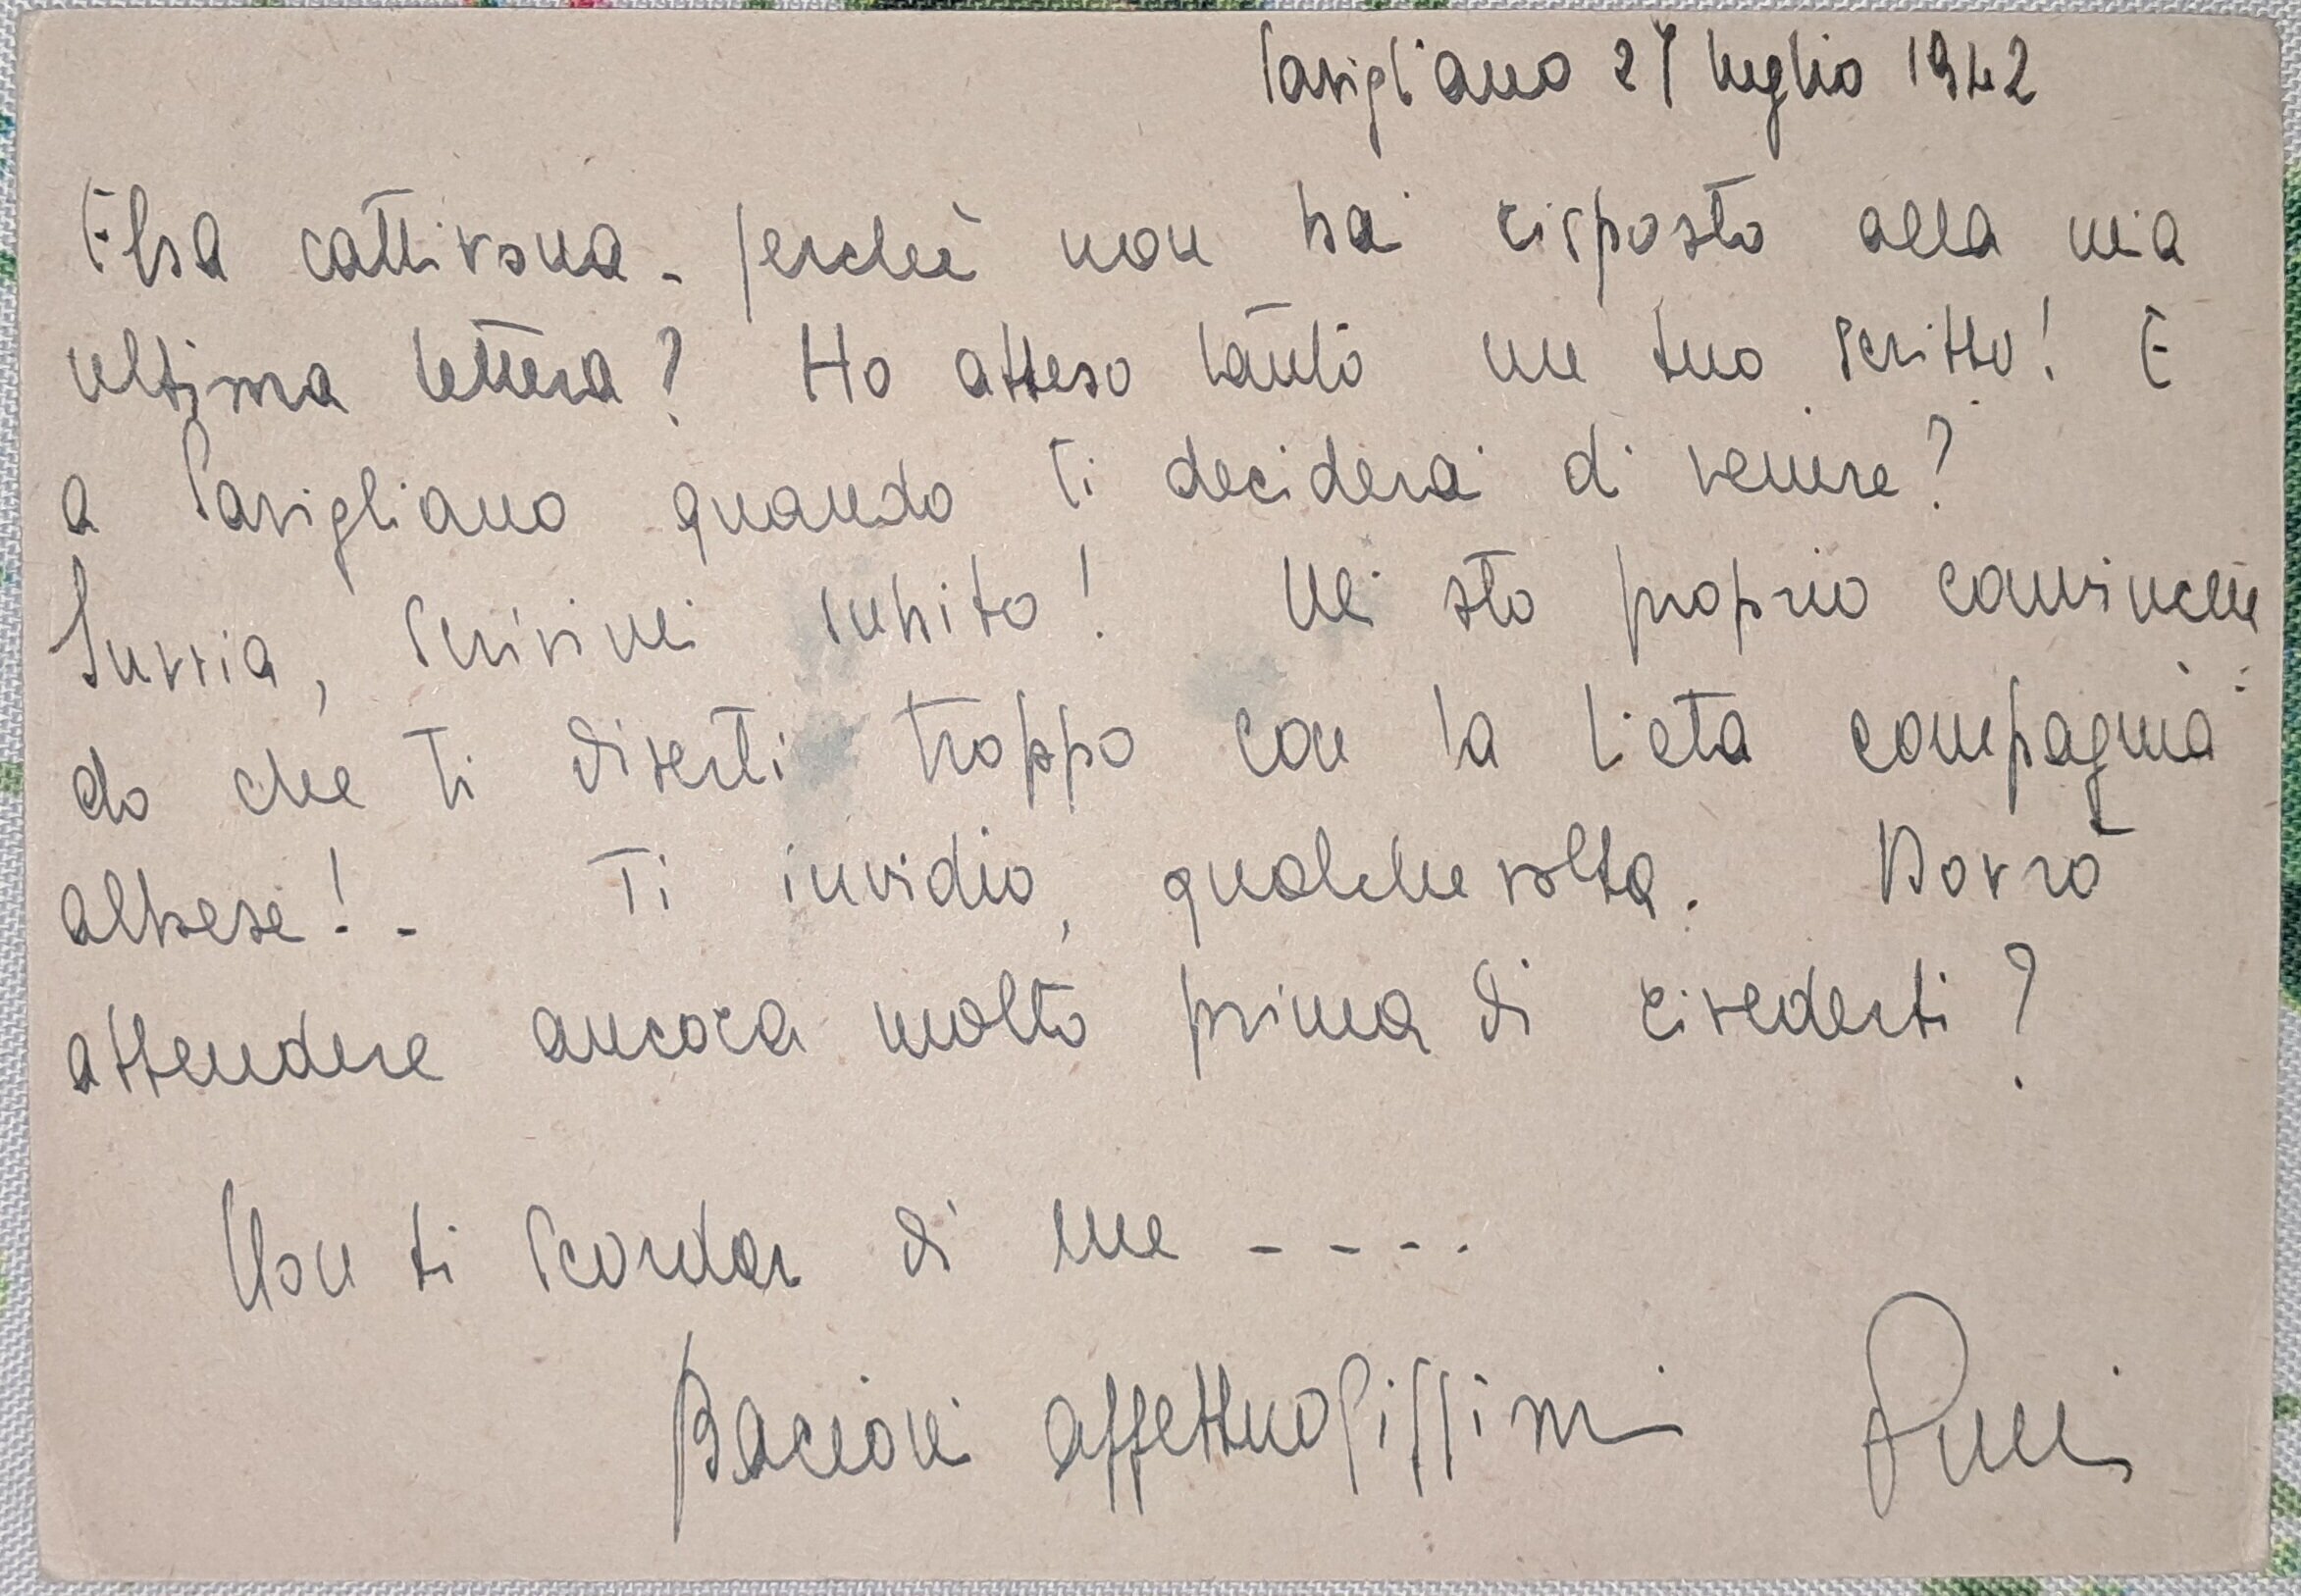 Savigliano 27 luglio 1942
Elsa cattivona - perchè non hai risposto alla mia
ultima lettera? Ho atteso tanto un tuo scritto! E
a Savigliano quando ti deciderai di venire?
Suvvia, scrivimi subito! Mi sto proprio convincen
do che ti diverti troppo con la lieta compagnia
albese! - Ti invidio, qualche volta. Dovrò
attendere ancora molto prima di rivederti?
Non ti scordar di me - - - -
Bacioni affettuosissimi